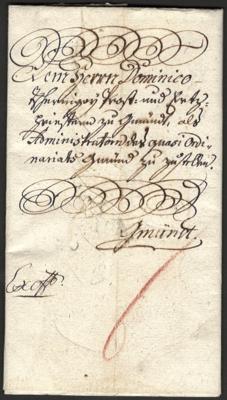 Dem Herrn Dominico
Probst- und Ertz-
Priestern zu Gmündt, als
Administratorn des quasi Ordi-
nariats Gmünd zu zustellen.
Gmündt.
Ex offo.